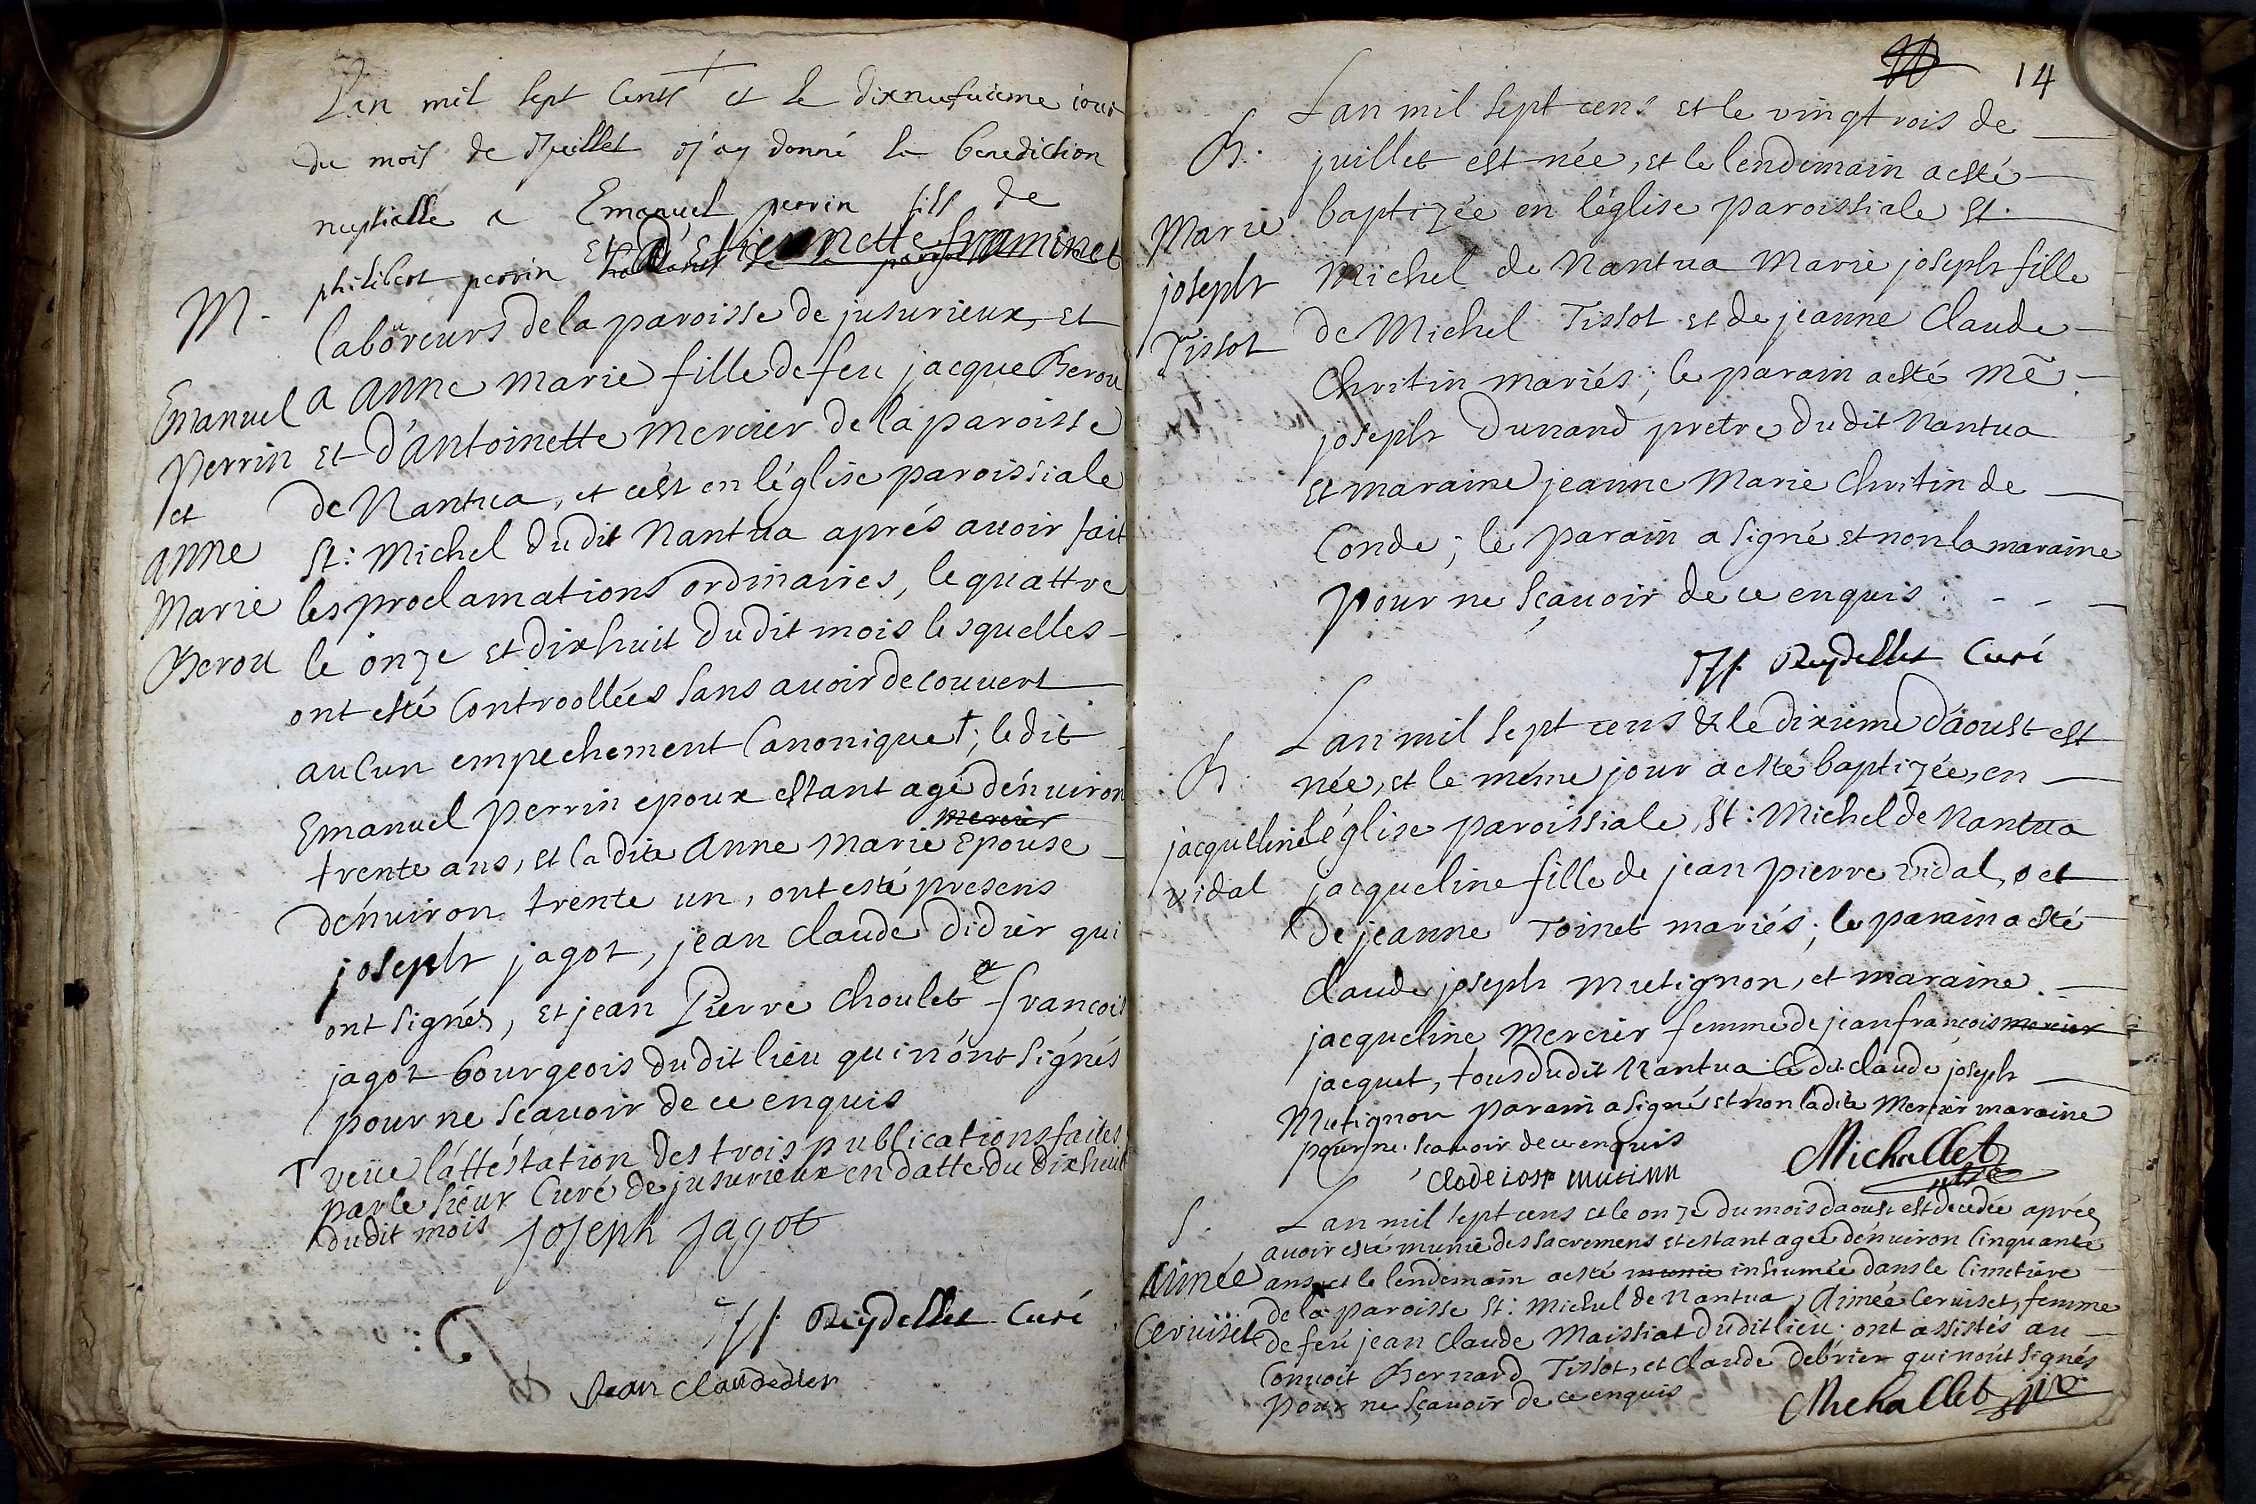 L'an mil sept Cents et le dixneufuieme iour
du mois de Juillet j'ay donné la benediction
nuptialle a Emanuel perrin fils de
philibert perrin et d'Estiennette framinet
laboureurs de la paroisse de jusurieux, et
M.
a anne marie fille de feu jacque Berou
Emanuel
Perrin
et
anne
Marie
Berou
et d'Antoinette mercier de la paroisse
de Nantua, et c'est en l'église paroissiale
St: Michel dudit Nantua aprés auoir fait
les proclamations ordinaires, le quattre
le onze et dixhuit dudit mois lesquelles
ont esté Controollées sans auoir decouuert
aucun empechement Canonique †; ledit
Emanuel Perrin epoux estant agé d'enuiron
mercier
trente ans, et la dite anne marie Epouse
d'enuiron trente un, ont esté presens
joseph jagot, jean claude didier qui
ont signés, et jean Pierre Choulet et françois
jagot bourgeois dudit lieu qui n'ont signés
pour ne scauoir de ce enquis
† veüe l'attéstation des trois publications faites
par le sieur Curé de jusurieux en datte du dixhuit
dudit mois
joseph jagot
Reydellet Curé
Jean Claude didier
14
L'an mil sept cens et le vingtrois de
B.
juillet est née, et le lendemain a esté
Marie
joseph
Tissot
baptizée en l'église paroissiale St.
Michel de Nantua Marie joseph fille
de Michel Tissot et de jeanne Claude
Chritin mariés; le parain a esté Mẽ
joseph Dunand pretre dudit Nantua
et maraine jeanne Marie Chritin de
Conde; le parain a signé et non la maraine
pour ne sçauoir de ce enquis.
Reydellet Curé
L'an mil sept cens & le dixieme d'aoust est
B.
née, et le méme jour a esté baptizée, en
jacquelline
vidal
l'église paroissiale St: Michel de Nantua
jacqueline fille de jean pierre vidal, et
de jeanne Toinet mariés; le parain a esté
claude joseph mutignon, et maraine
jacqueline Mercier femme de jean françois mercier
jacquet, tous dudit Nantua le dit claude joseph
Mutignon parain a signé et non la dite Mercier maraine
pour ne scauoir de ce enquis
Clode iosp mutinn
Michallet
S.
L'an mil sept cens et le onze du mois d'aoust est decedée aprés
auoir esté munie des sacremens et estant agée d'enuiron Cinquante
Aimée
Ceruiset
ans, et le lendemain a esté munie inhumée dans le Cimetiere
de la paroisse St: Michel de Nantua, Aimée Ceruiset, femme
de feu jean claude Maissiat dudit lieu; ont assistés au
Conuoit Bernard Tissot, et claude debrier qui n'ont signés
pour ne sçauoir de ce enquis
Michallet